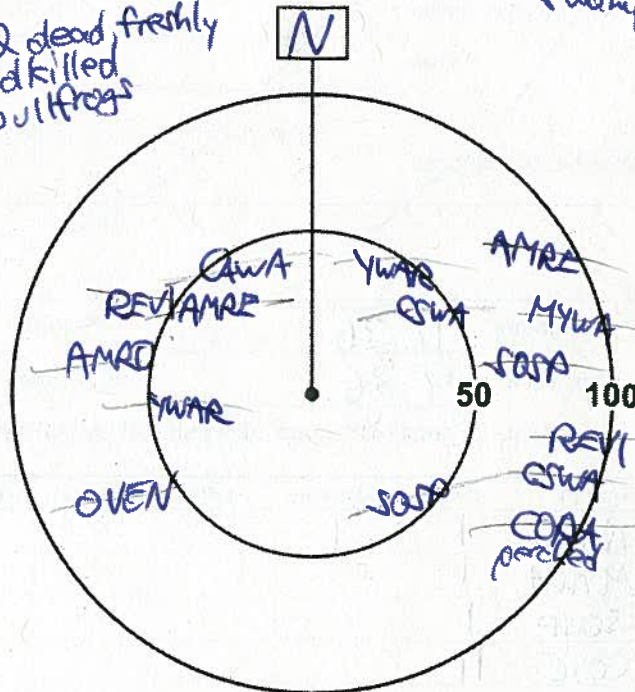 2 dead, freshly
killed
bullfrogs
N
CAWA
YWAR
AMRE
REVI AMRE
CSWA
MYWA
AMRE
SOSP
50
100
YWAR
REVI
CSWA
OVEN
SOSP
CORA
perched